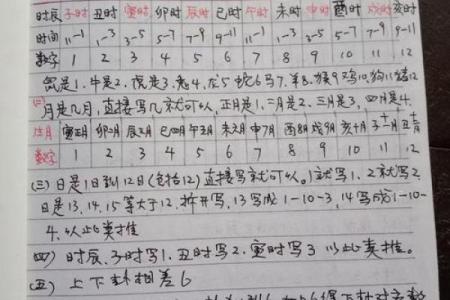 时辰 子时 丑时 寅时 卯时 辰时 巳时 午时 未时 申时 酉时 戌时 亥时
时间 11-1 1-3 3-5 5-7 7-9 9-11 11-1 1-3 3-5 5-7 7-9 9-11
数字 1 2 3 4 5 6 7 8 9 10 11 12
鼠是1.牛是2.虎是3.兔4,龙5 蛇6 马7.羊8.猴9 鸡10,狗11 猪12
月是几月,直接写几就可以,正月是1,二月是2.三月是3,四月是4.
正月 寅正月 卯二月 辰三月 巳四月 午五月 未六月 申7月 酉8月 戌9月 亥十月 子十一月 丑十二月
数字 1 2 3 4 5 6 7 8 9 10 11 12
(三) 日是1日到12日(包括12)直接写就可以.1就写1、2就写2
日是13,14,15等大于12,拆开写,13写成1-10-3,14写成1-10-
4.以此类推
(四) 时辰、子时写1、丑时写2、寅时写3 以此类推。
(五) 上下卦相差6